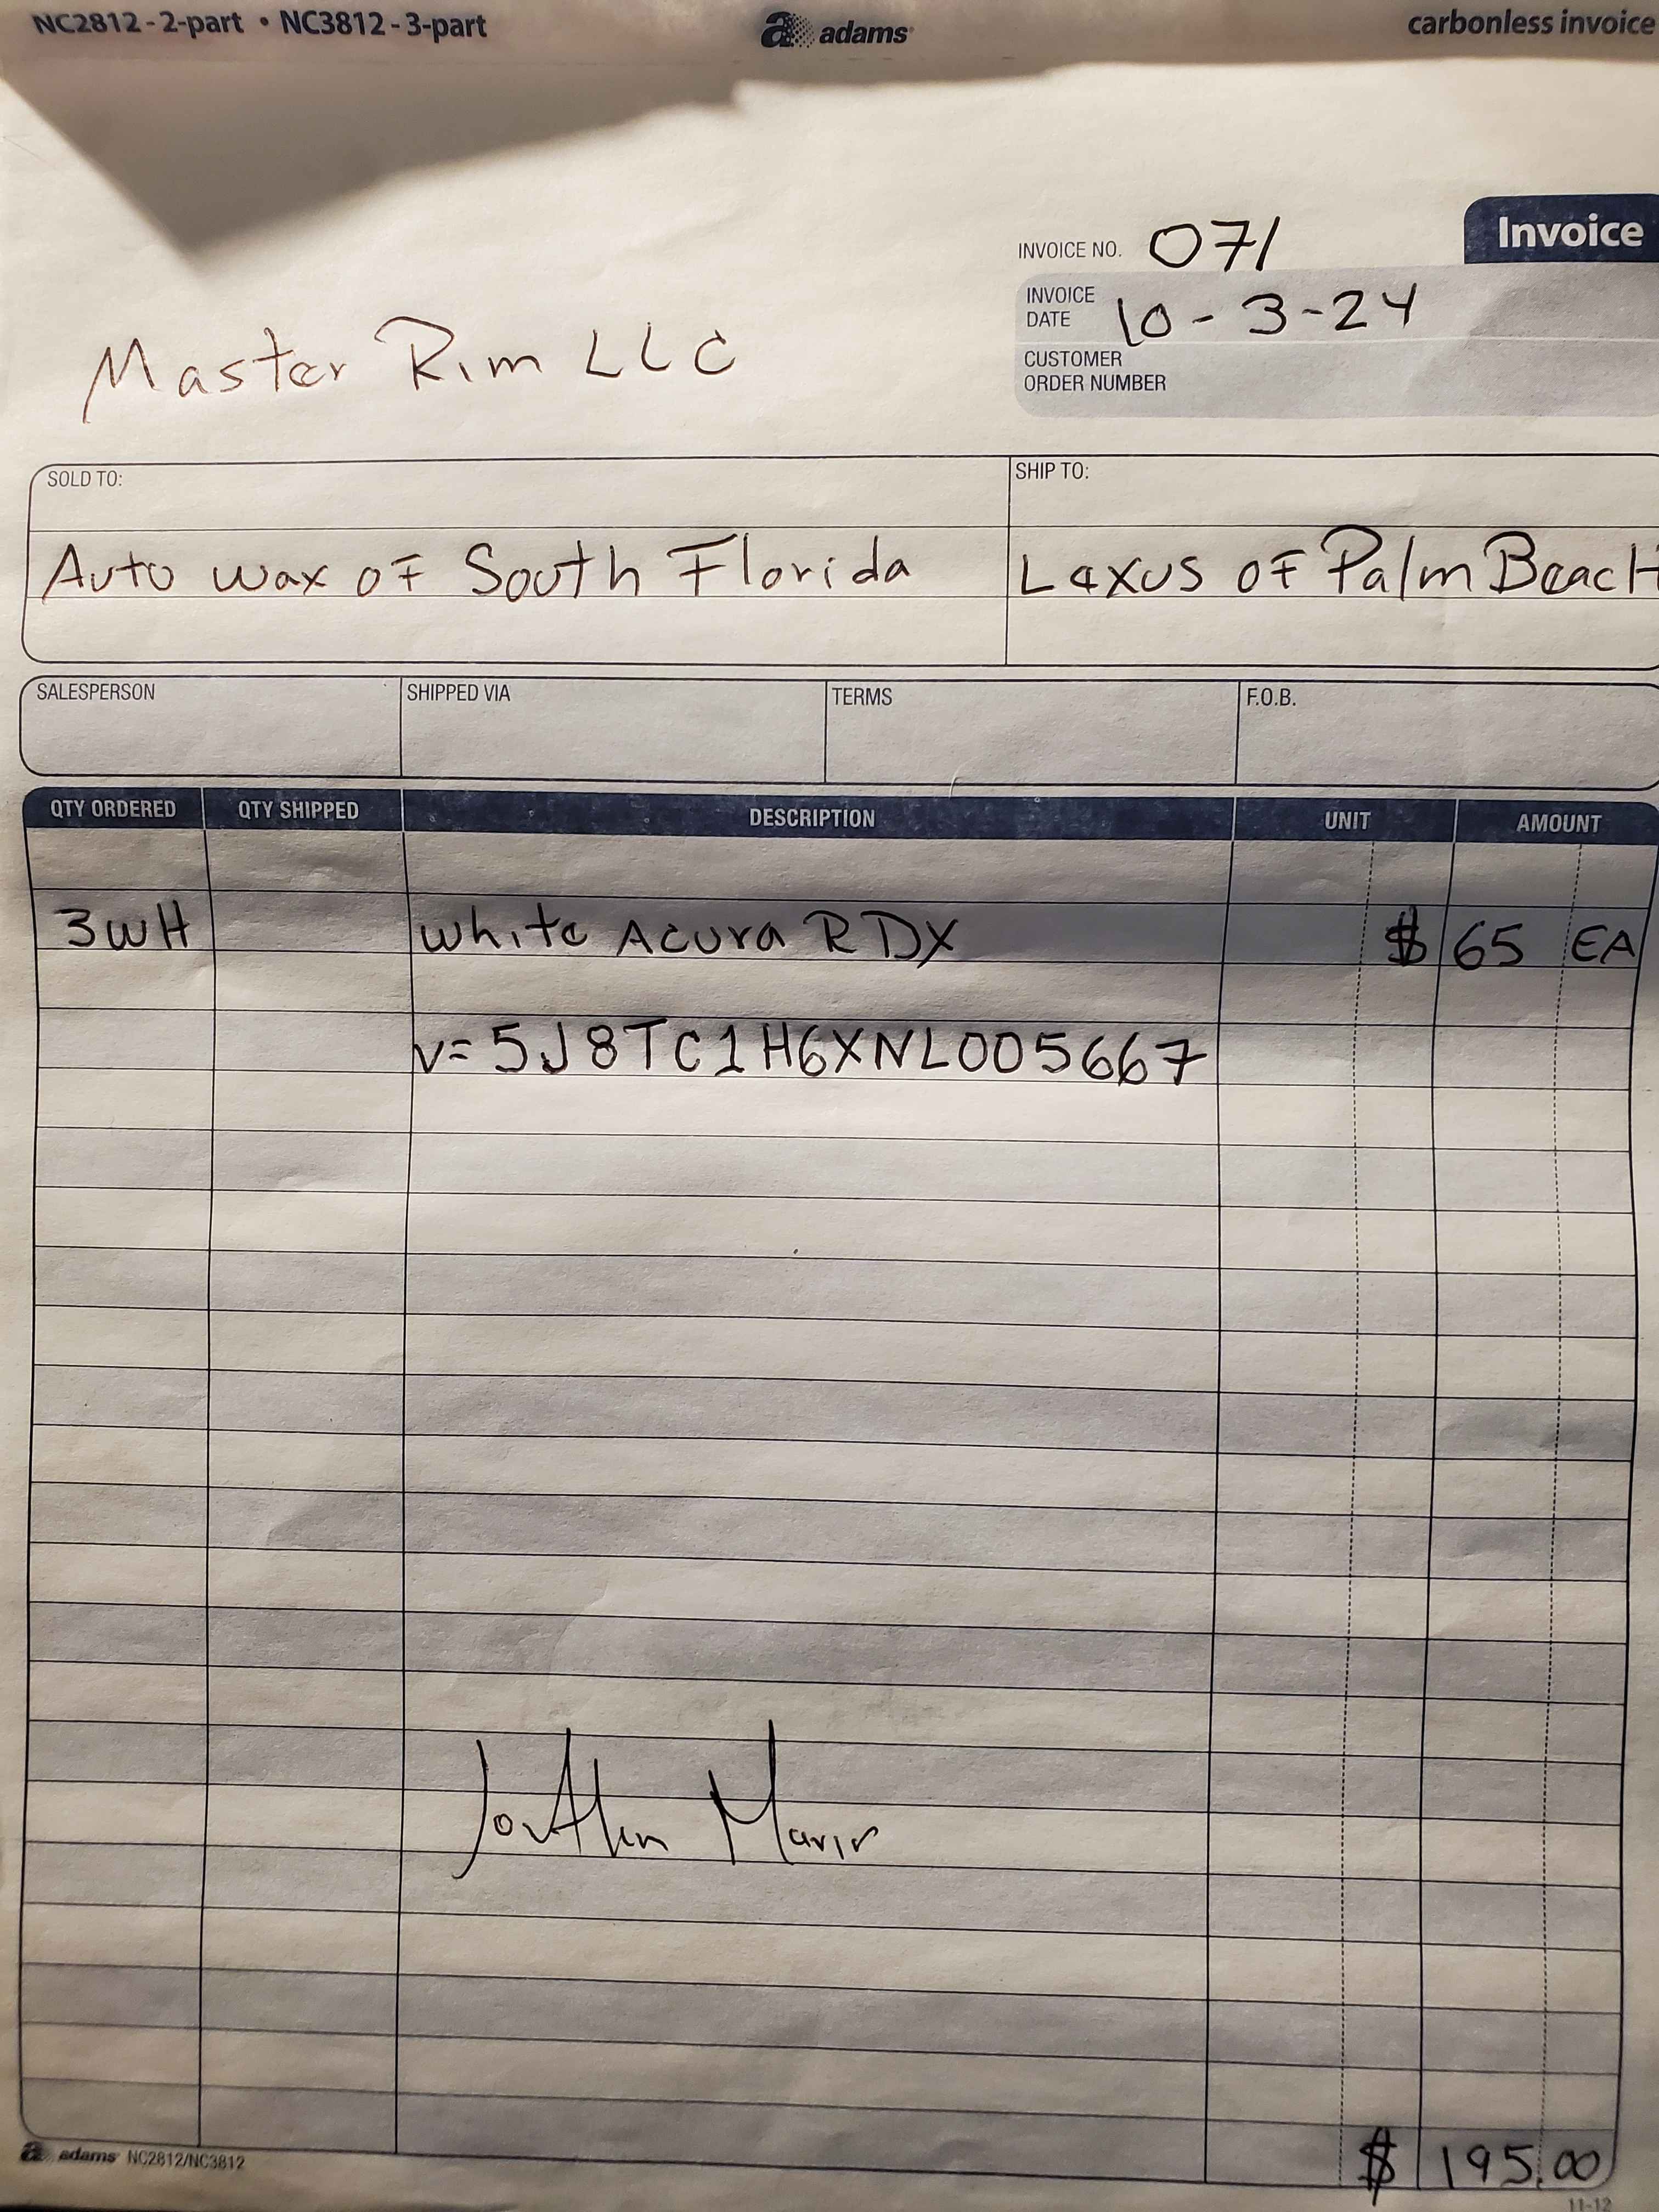 NC2812 - 2-part • NC3812 - 3-part
adams
carbonless invoice
Invoice
INVOICE NO. 071
INVOICE DATE 10-3-24
CUSTOMER ORDER NUMBER
Master Rim LLC
SOLD TO: SHIP TO:
Auto wax of South Florida Lexus of Palm Beach
SALESPERSON SHIPPED VIA TERMS F.O.B.
QTY ORDERED QTY SHIPPED DESCRIPTION UNIT AMOUNT
3WH White Acura RDX $ 65 EA
V=5J8TC1H6XNL005667
$ 195.00
adams NC2812/NC3812
11-12